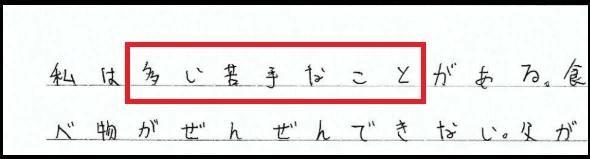 私は多い苦手なことがある。食
べ物がぜんぜんできない。父が